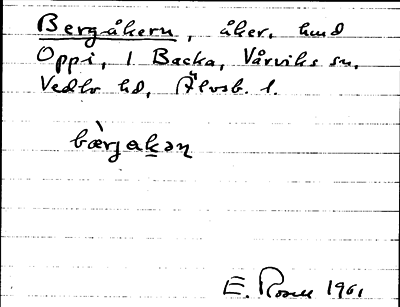 Bergåkern, åker, hmd
Oppi, 1 Backa, Vårviks sn,
Vedbo hd, Älvsb. l.
bæ̀rjak̲ən
E. Rosell 1961